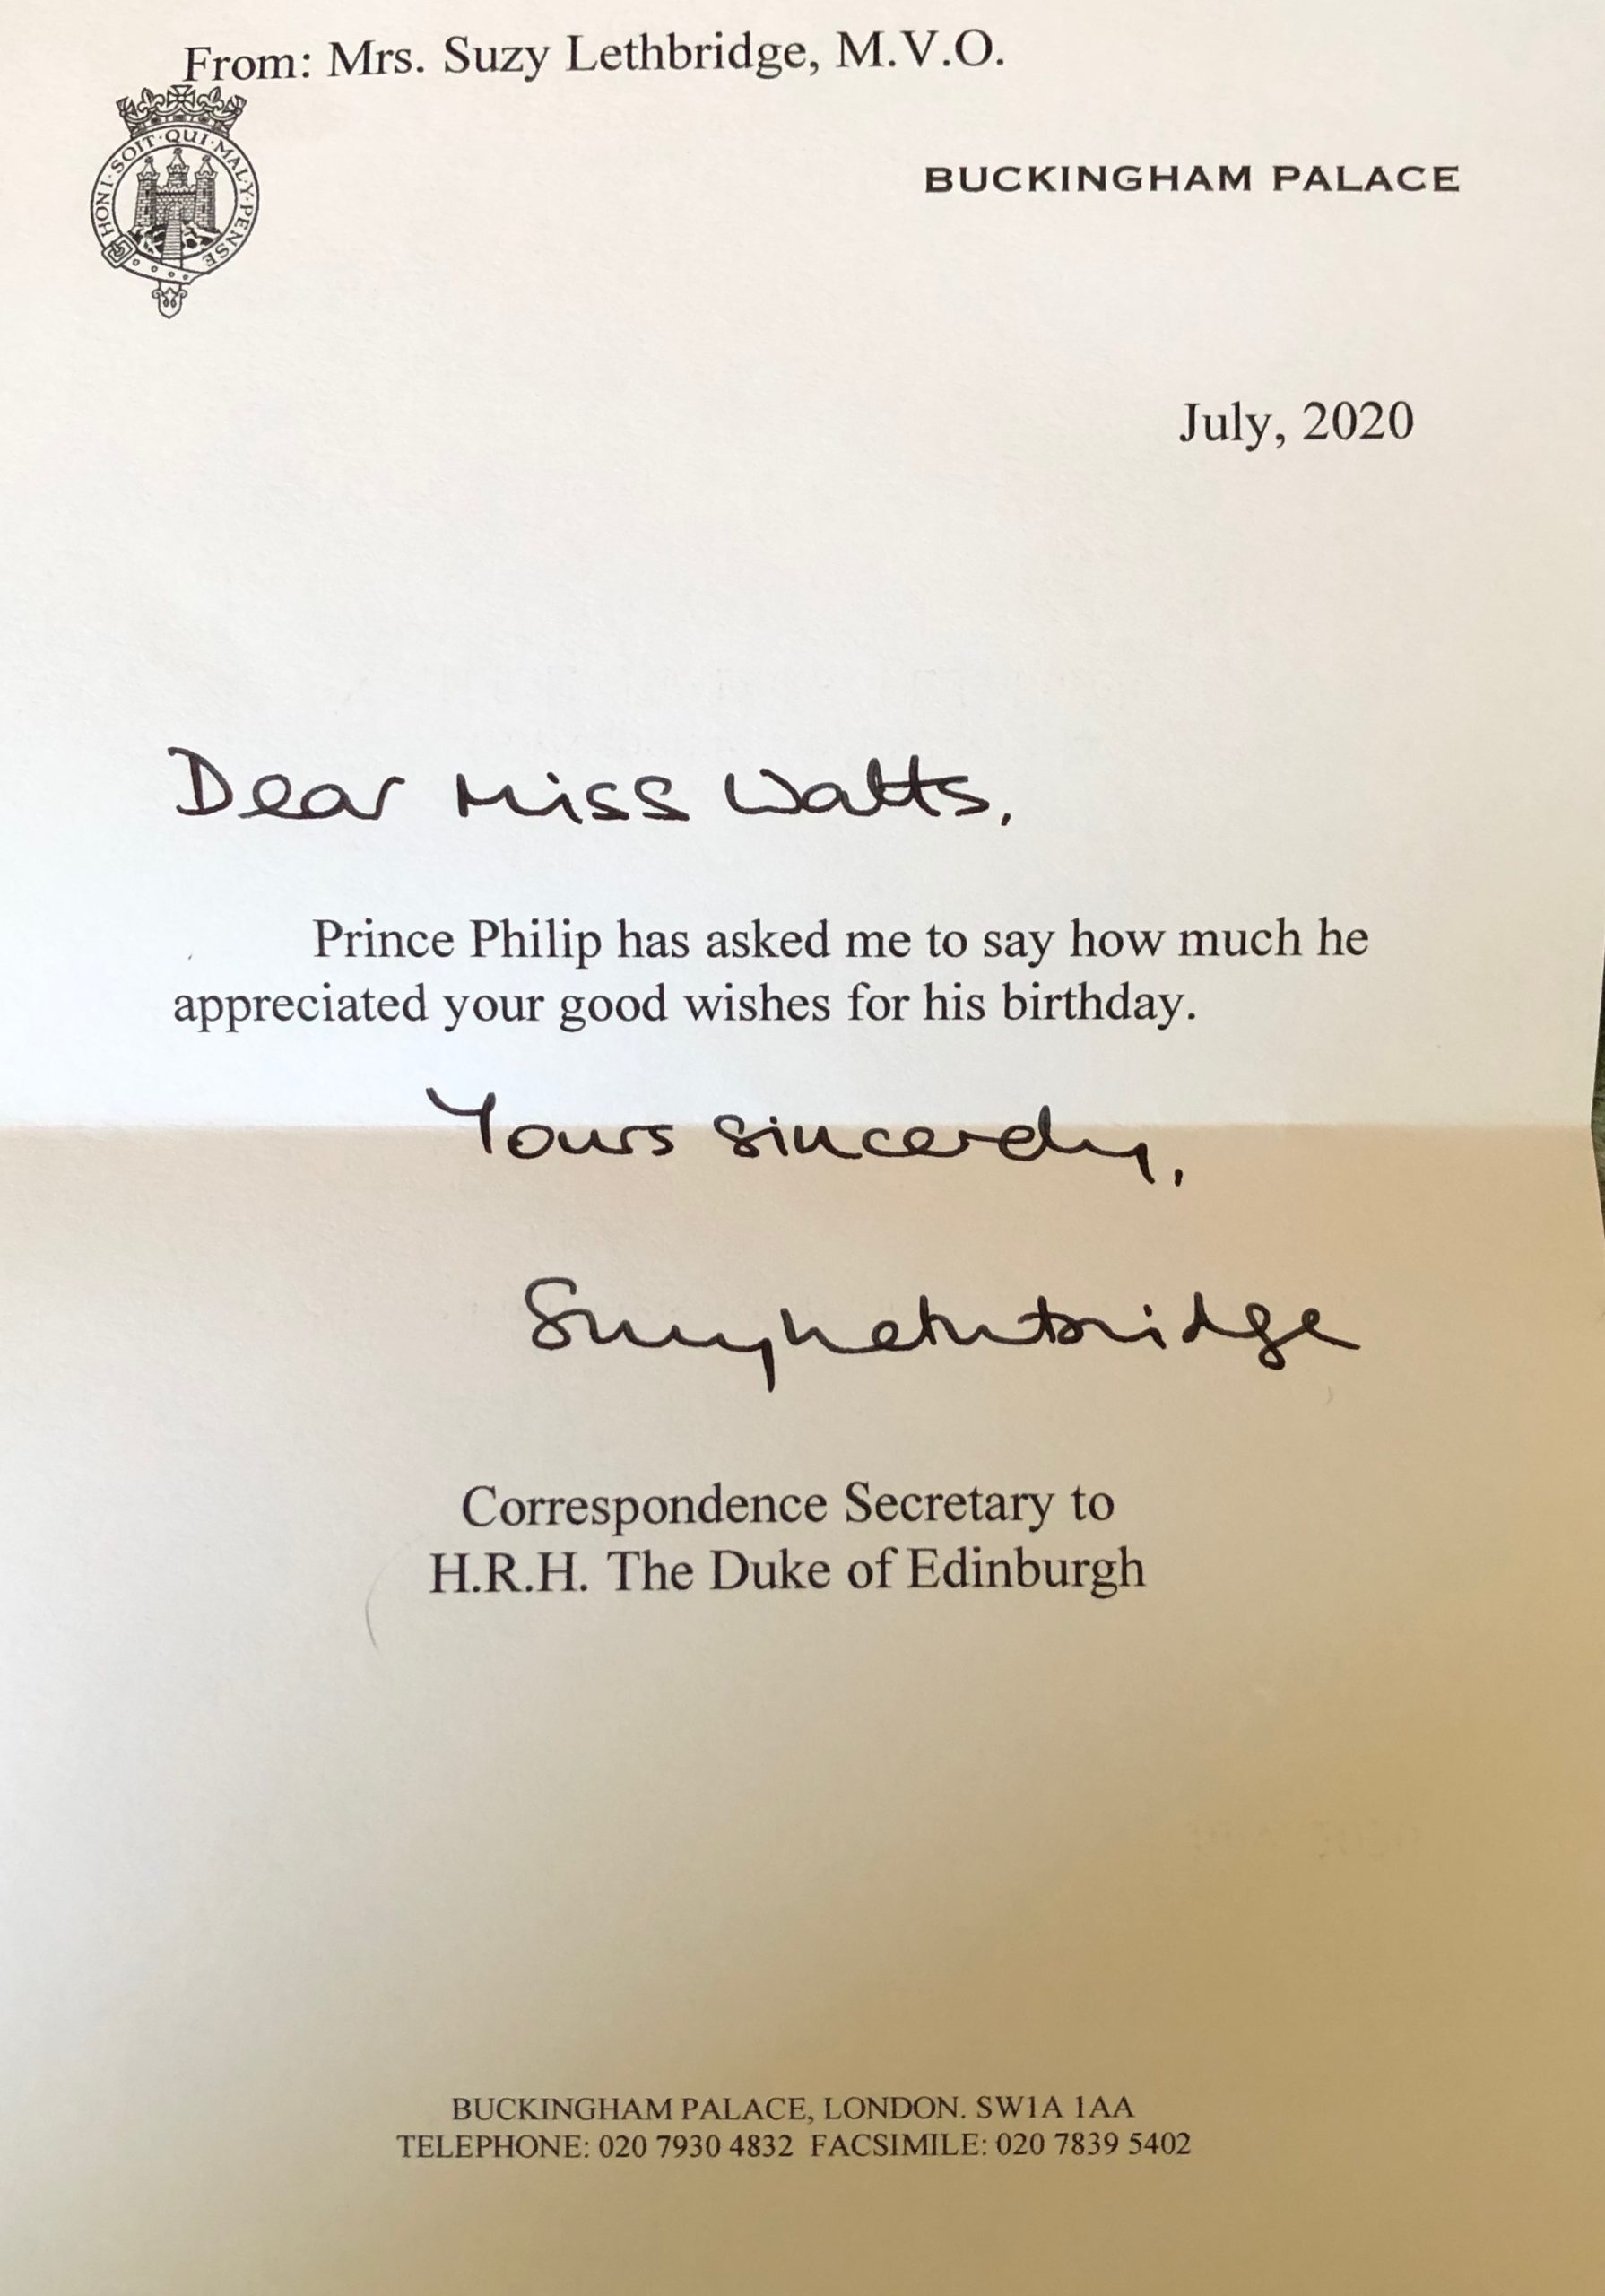 From: Mrs. Suzy Lethbridge, M.V.O.
HONI·SOIT·QUI·MAL·Y·PENSE
BUCKINGHAM PALACE
July, 2020
Dear Miss Watts,
Prince Philip has asked me to say how much he
appreciated your good wishes for his birthday.
Yours sincerely,
Suzy Lethbridge
Correspondence Secretary to
H.R.H. The Duke of Edinburgh
BUCKINGHAM PALACE, LONDON. SW1A 1AA
TELEPHONE: 020 7930 4832 FACSIMILE: 020 7839 5402